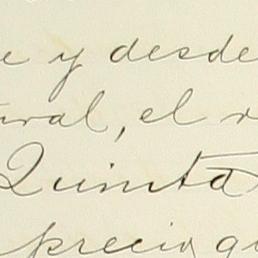 e y desde
ural, el
Quinta
precio qu